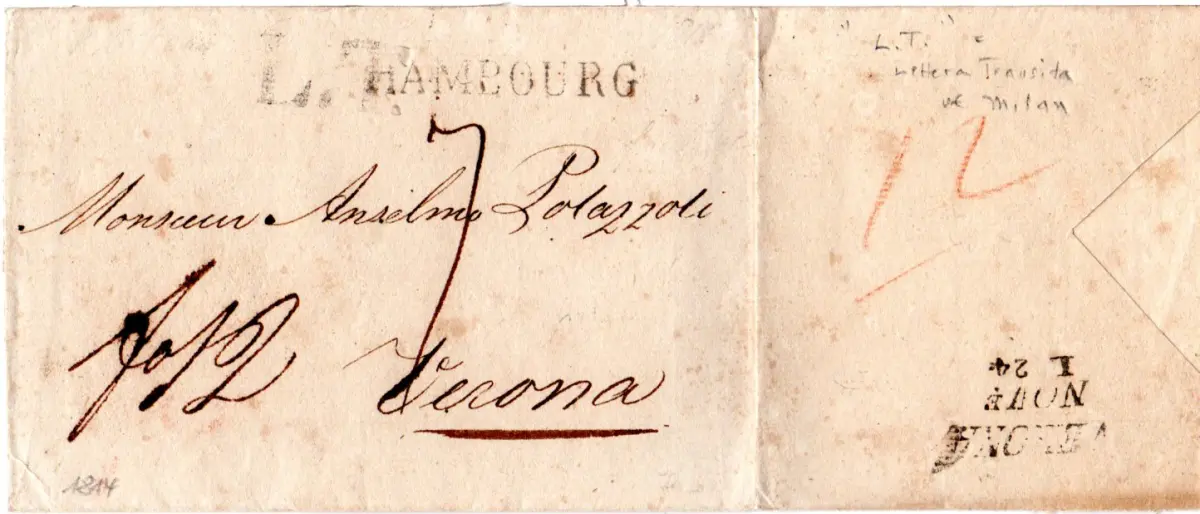 L.T. HAMBOURG
7
Monsieur Anselmo Polazzoli
Verona
1814
"L.T." =
Lettera Transito
de Milan
12
VERONA
NOVE
L 24.